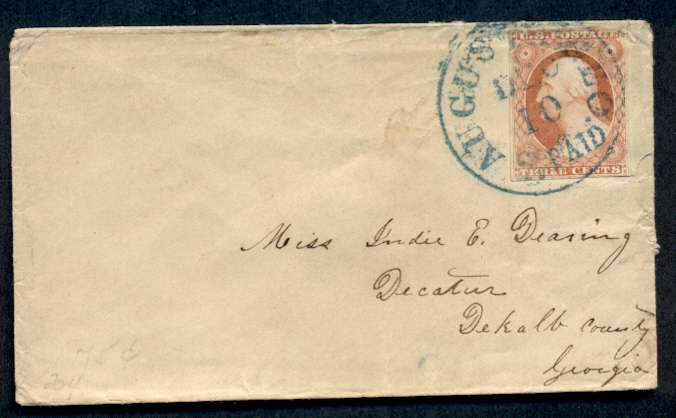 U.S. POSTAGE
AUGUSTA
DEC
10
3 PAID
THREE CENTS
Miss Indie E. Dearing
Decatur
Dekalb County
Georgia
75¢